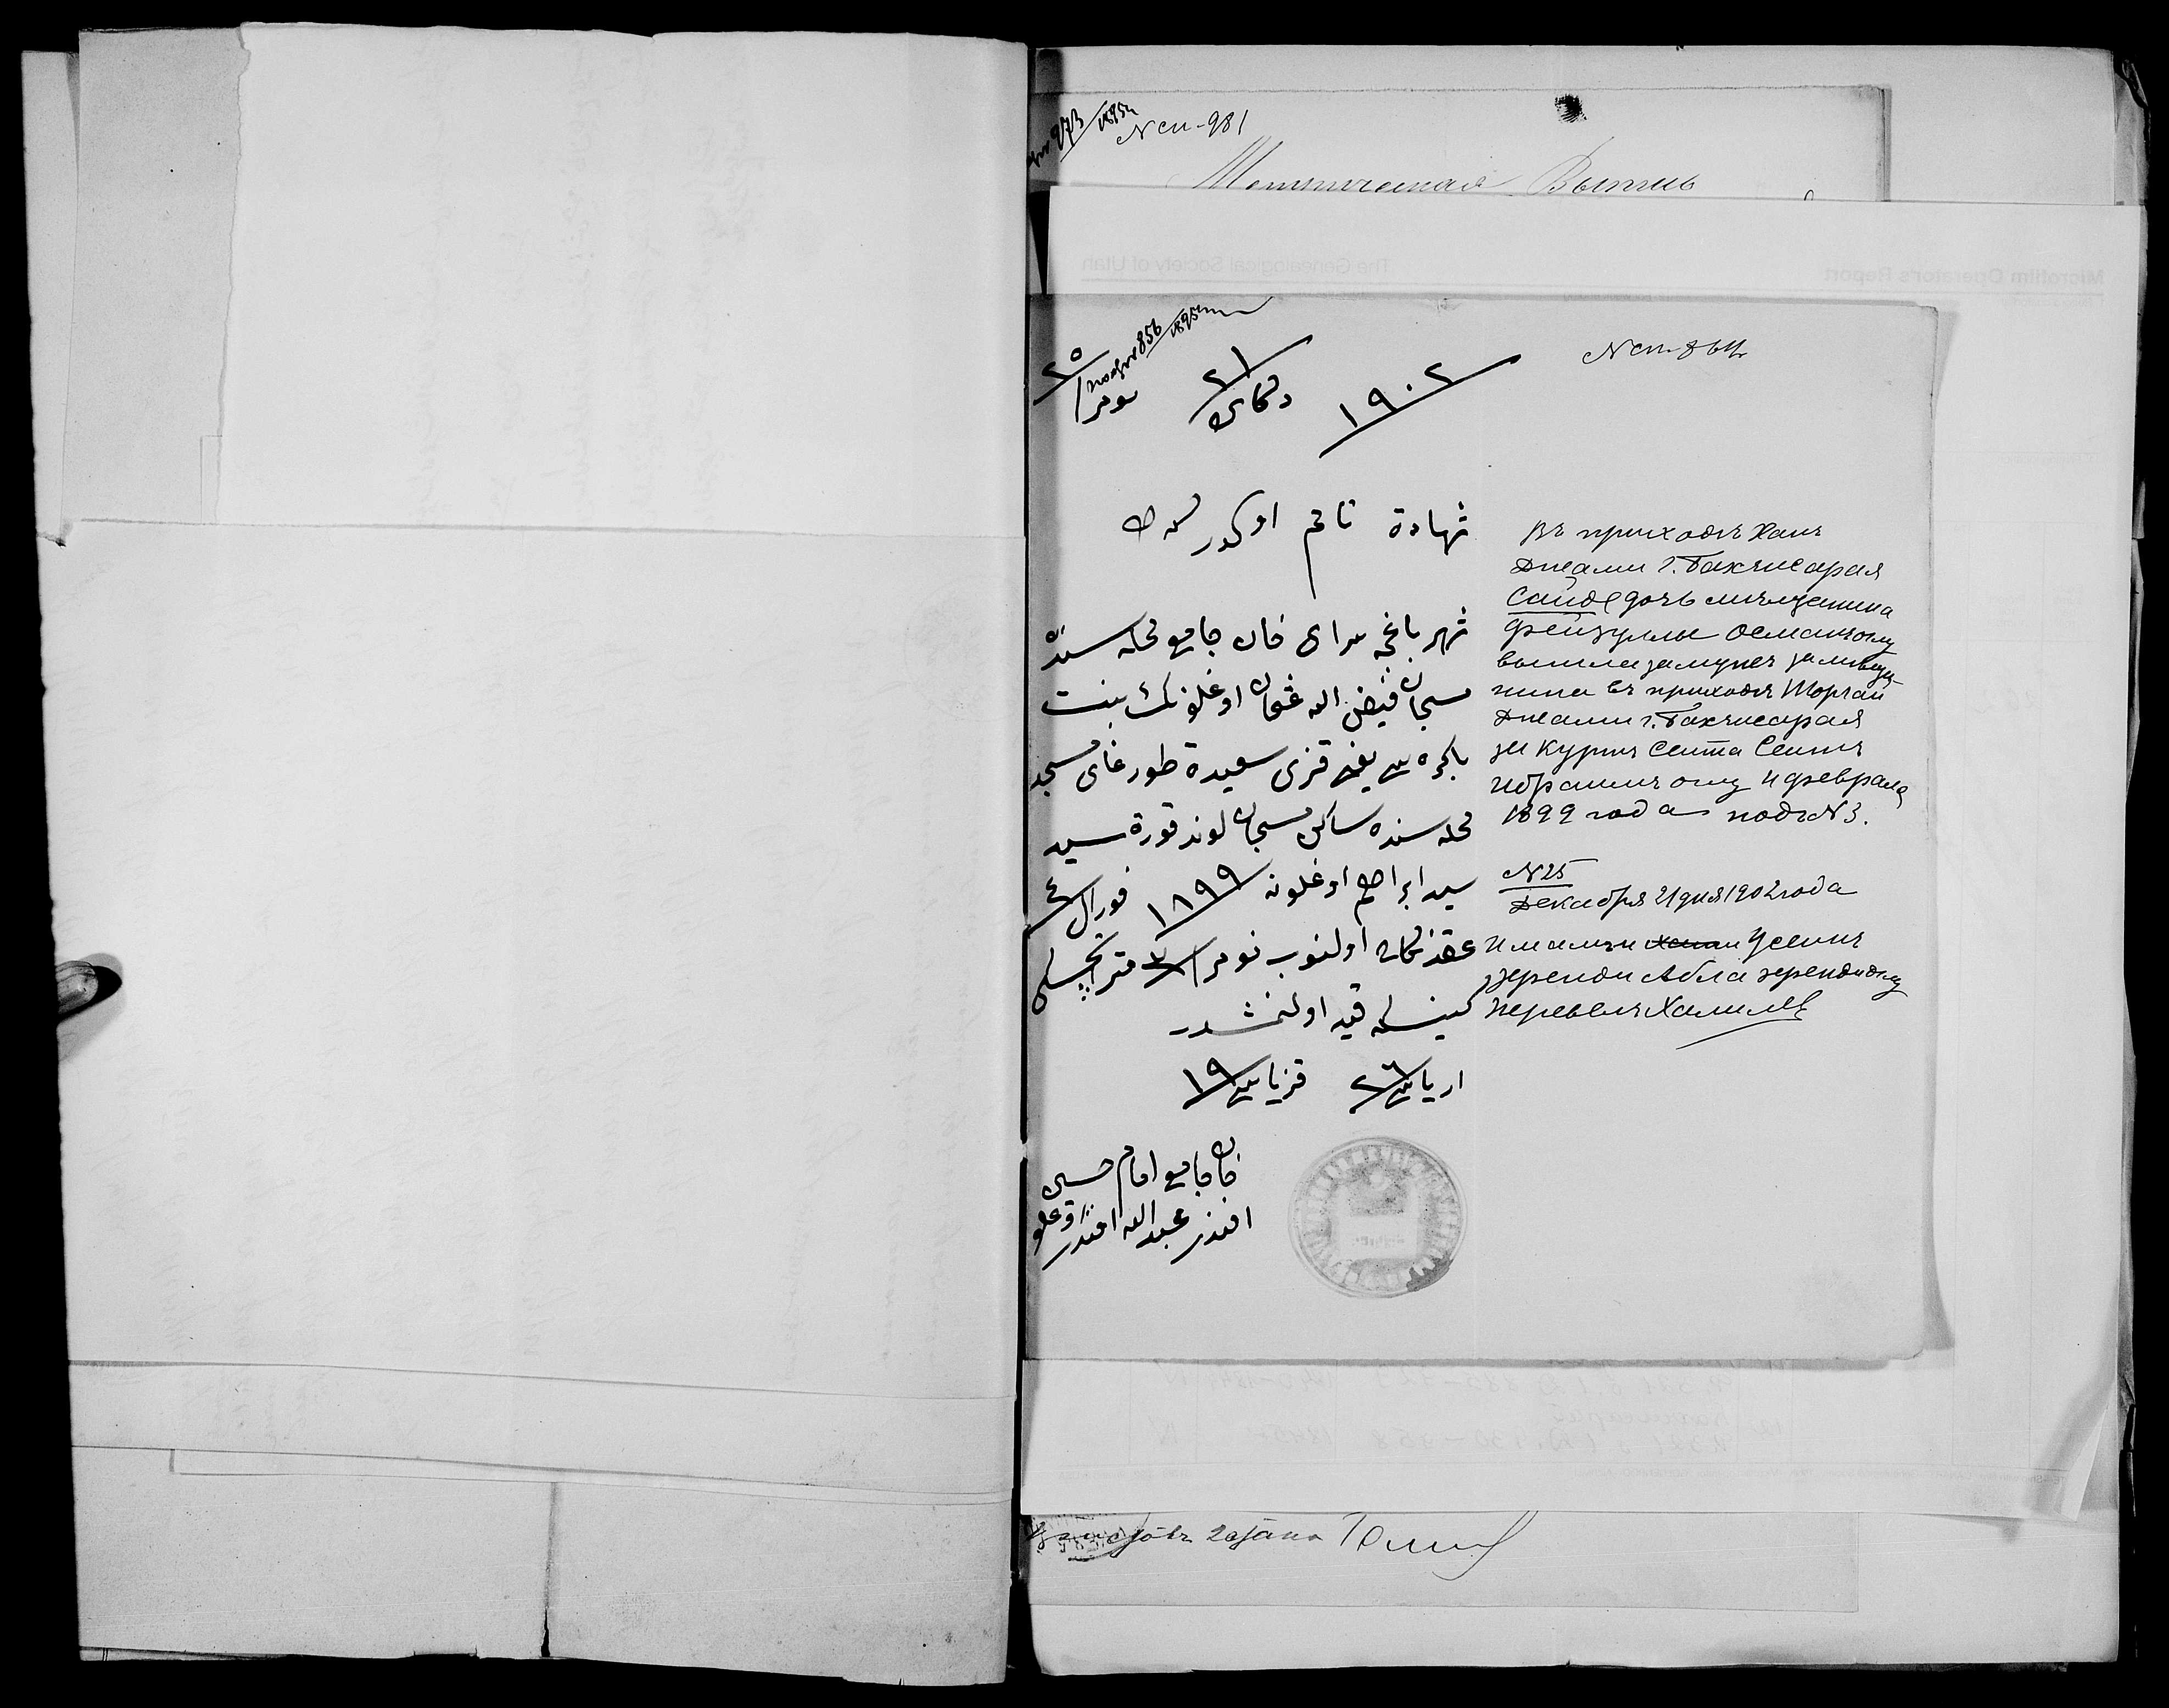 N сп-981
Метрическая Выпись
The Genealogical Society of Utah
Microfilm Operator's Report
N сп-864
подN 856
1895
٢٥
نومر
٢١
دقابر
١٩٠٢
شهادة نامه
شهر باغچه سرای خان جامع محله سنده
مسچان فیض الله عثمان اوغلونك بنت
باکره سی یعنی قزی سعیدة طورغای مسجد
محله سنده ساکن مسچان لوند قورة سید
سید ابراهیم اوغلونه ١٨٩٩ فورال ٤
عقد نکاح اولنوب نومر ٣ متریچسکی
کنیسله قید اولنمشدر
ار یاشی ٢٦ قز یاشی ١٩
خان جامع امام حسین
افندی عبدالله افندی اوغلو
Въ приходѣ Ханъ
Джами г. Бахчисарая
Саиде дочь мѣщанина
Фейзуллы Османъ оглу
вышла замужъ за мѣща-
нина въ приходѣ Торгай
Джами г. Бахчисарая
за Куртъ Сеита Сеитъ
Ибраимъ оглу 4 февраля
1899 года подъ N 3.
N 25
Декабря 21 дня 1902 года
имамъ и Усеинъ
эфенди Абла эфенди оглу
перевелъ Халилев